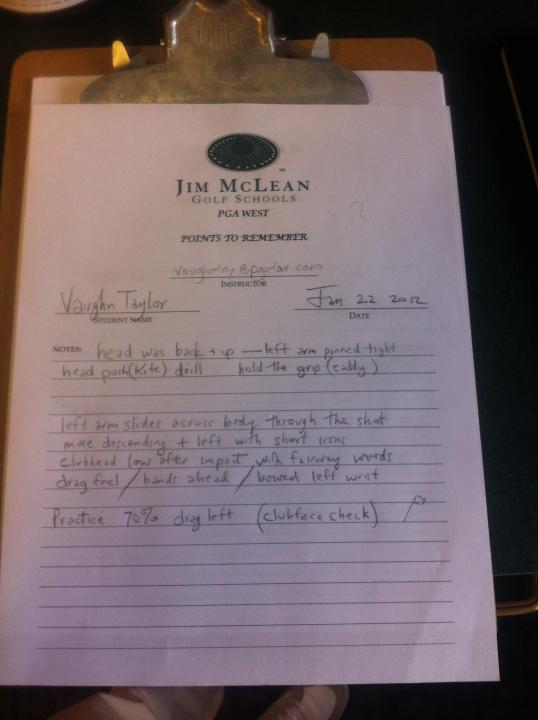 JIM MCLEAN
GOLF SCHOOLS
PGA WEST
POINTS TO REMEMBER
INSTRUCTOR
Vaughn Taylor Jan 22 2012
STUDENT NAME DATE
NOTES: head was back + up — left arm pinned tight
head push (Kite) drill hold the grip (caddy)
left arm slides across body through the shot
more descending + left with short irons
clubhead low after impact with fairway woods
drag feel / hands ahead / bowed left wrist
Practice 70% drag left (clubface check)